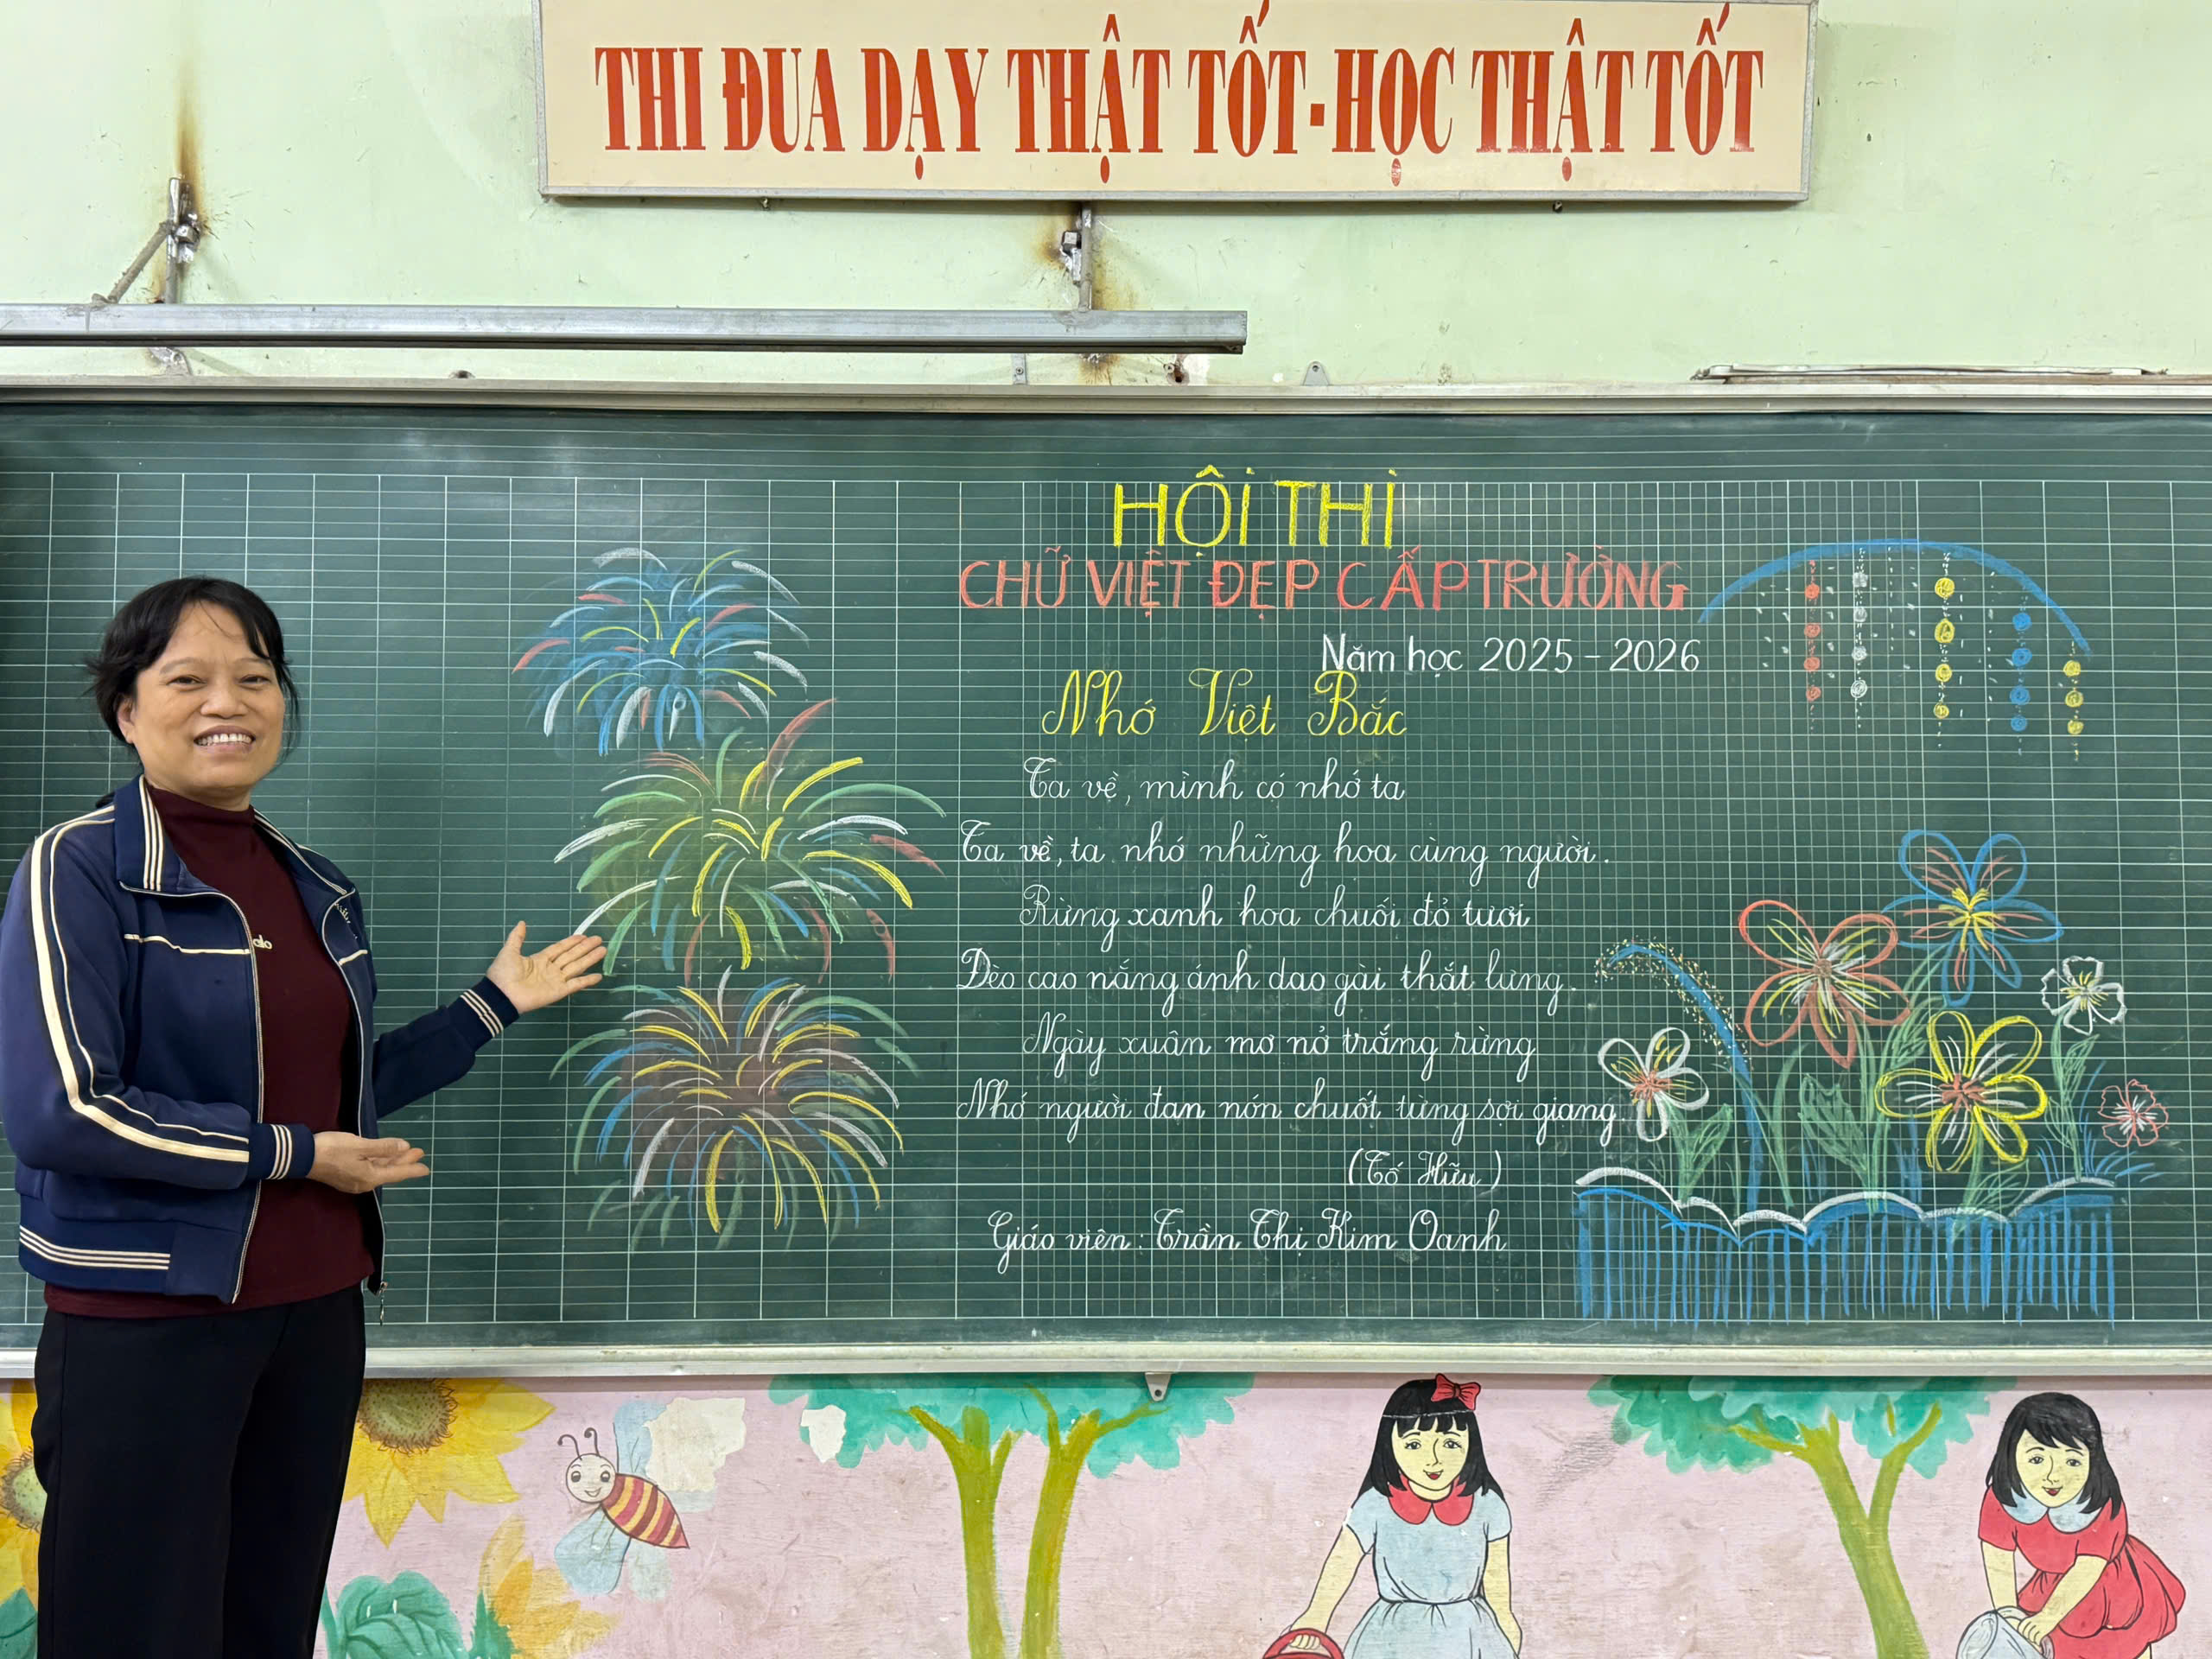 THI ĐUA DẠY THẬT TỐT - HỌC THẬT TỐT
HỘI THI
CHỮ VIỆT ĐẸP CẤP TRƯỜNG
Năm học 2025 - 2026
Nhớ Việt Bắc
Ta về, mình có nhớ ta
Ta về, ta nhớ những hoa cùng người.
Rừng xanh hoa chuối đỏ tươi
Đèo cao nắng ánh dao gài thắt lưng.
Ngày xuân mơ nở trắng rừng
Nhớ người đan nón chuốt từng sợi giang.
(Tố Hữu)
Giáo viên: Trần Thị Kim Oanh